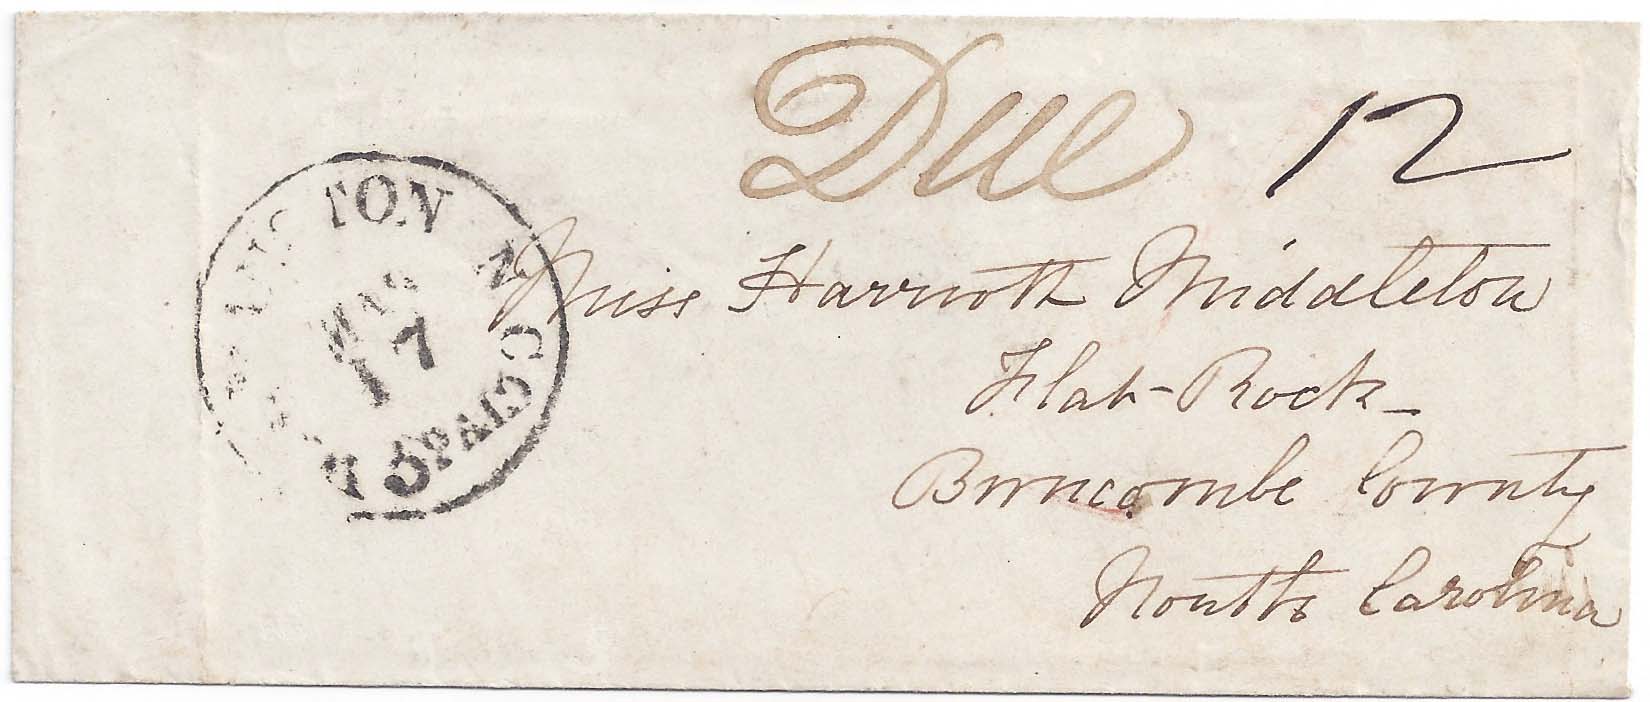 Due 12
N C
17
5 PAID
Miss Harriott Middleton
Flat-Rock_
Buncombe County
North Carolina